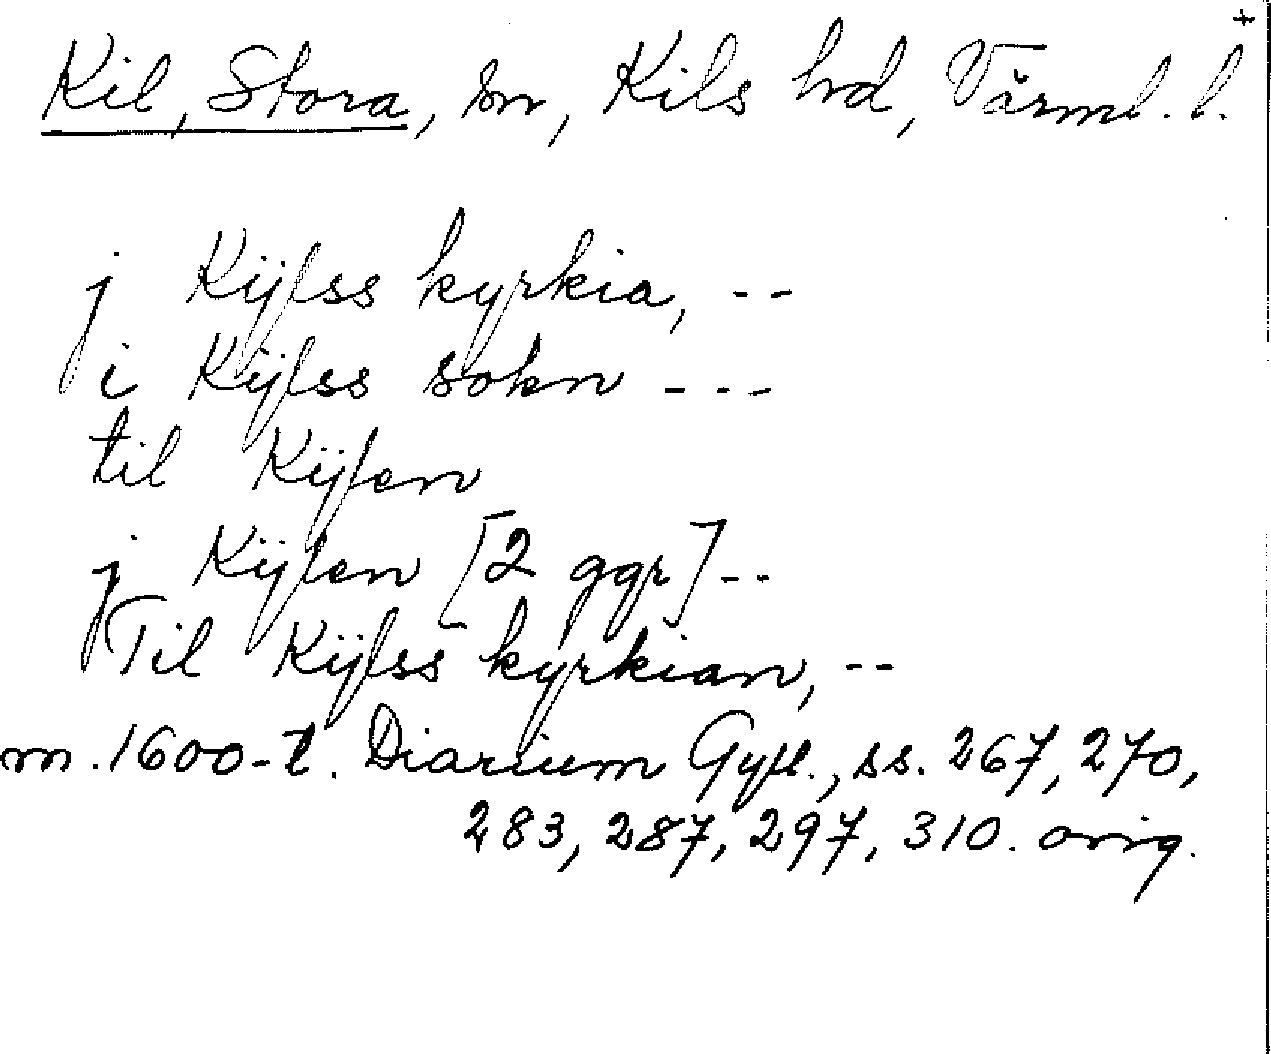 +
Kil, Stora, sn, Kils hd, Värml. l.
j Kÿlss kyrkia, --
i Kÿlss sokn ---
til Kÿlen
j Kÿlen [2 ggr] --
Til Kÿlss kyrkian, --
m. 1600-t. Diarium Gyll., ss. 267, 270,
283, 287, 297, 310. orig.